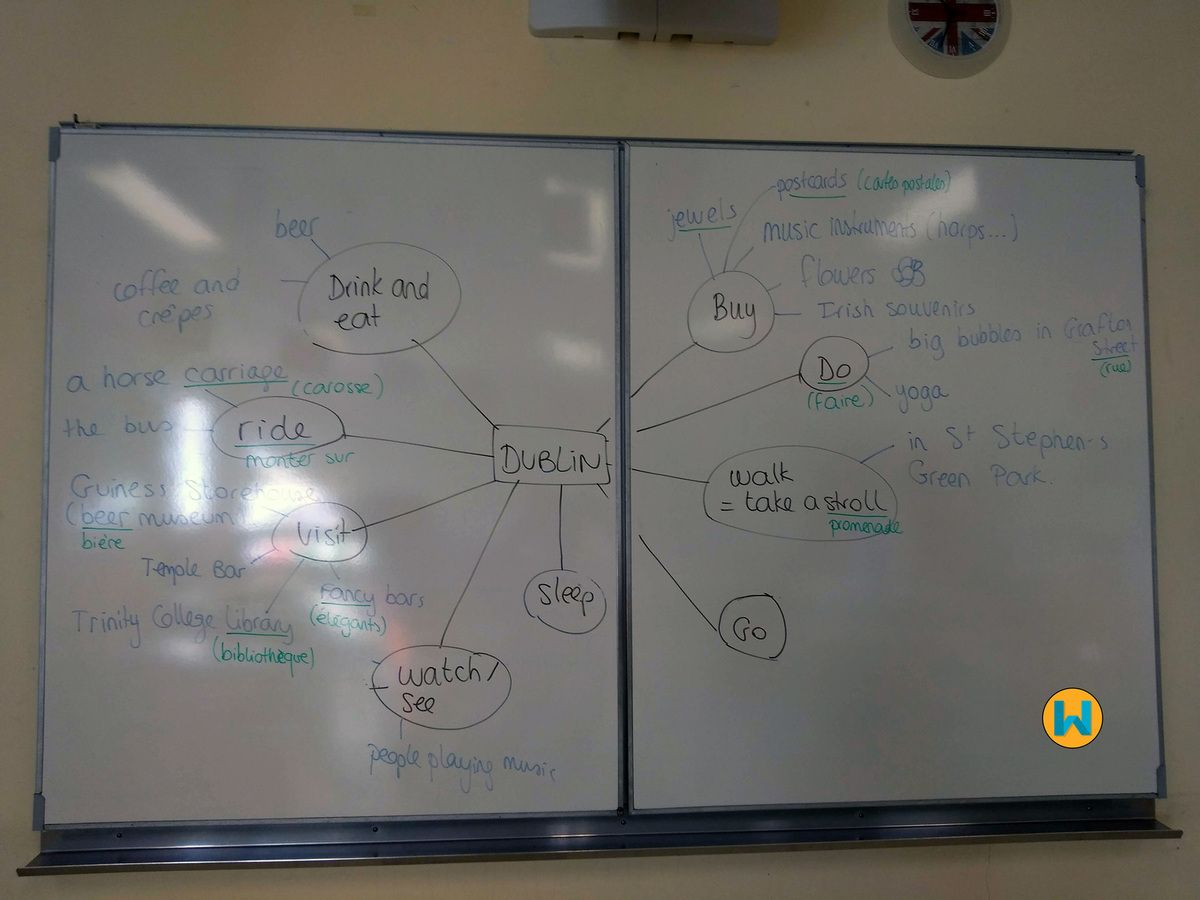 beer
Drink and
eat
coffee and
crêpes
a horse carriage (carosse)
the bus
ride
monter sur
Guiness Storehouse
(beer museum
bière
visit
Temple Bar
Fancy bars
(élégants)
Trinity College library
(bibliothèque)
watch/
see
people playing music
DUBLIN
sleep
postcards (cartes postales)
jewels
music instruments (harps...)
flowers
Buy
Irish souvenirs
big bubbles in Grafton
Street
(rue)
Do
(faire)
yoga
in St Stephen's
Green Park.
walk
= take a stroll
promenade
Go
W